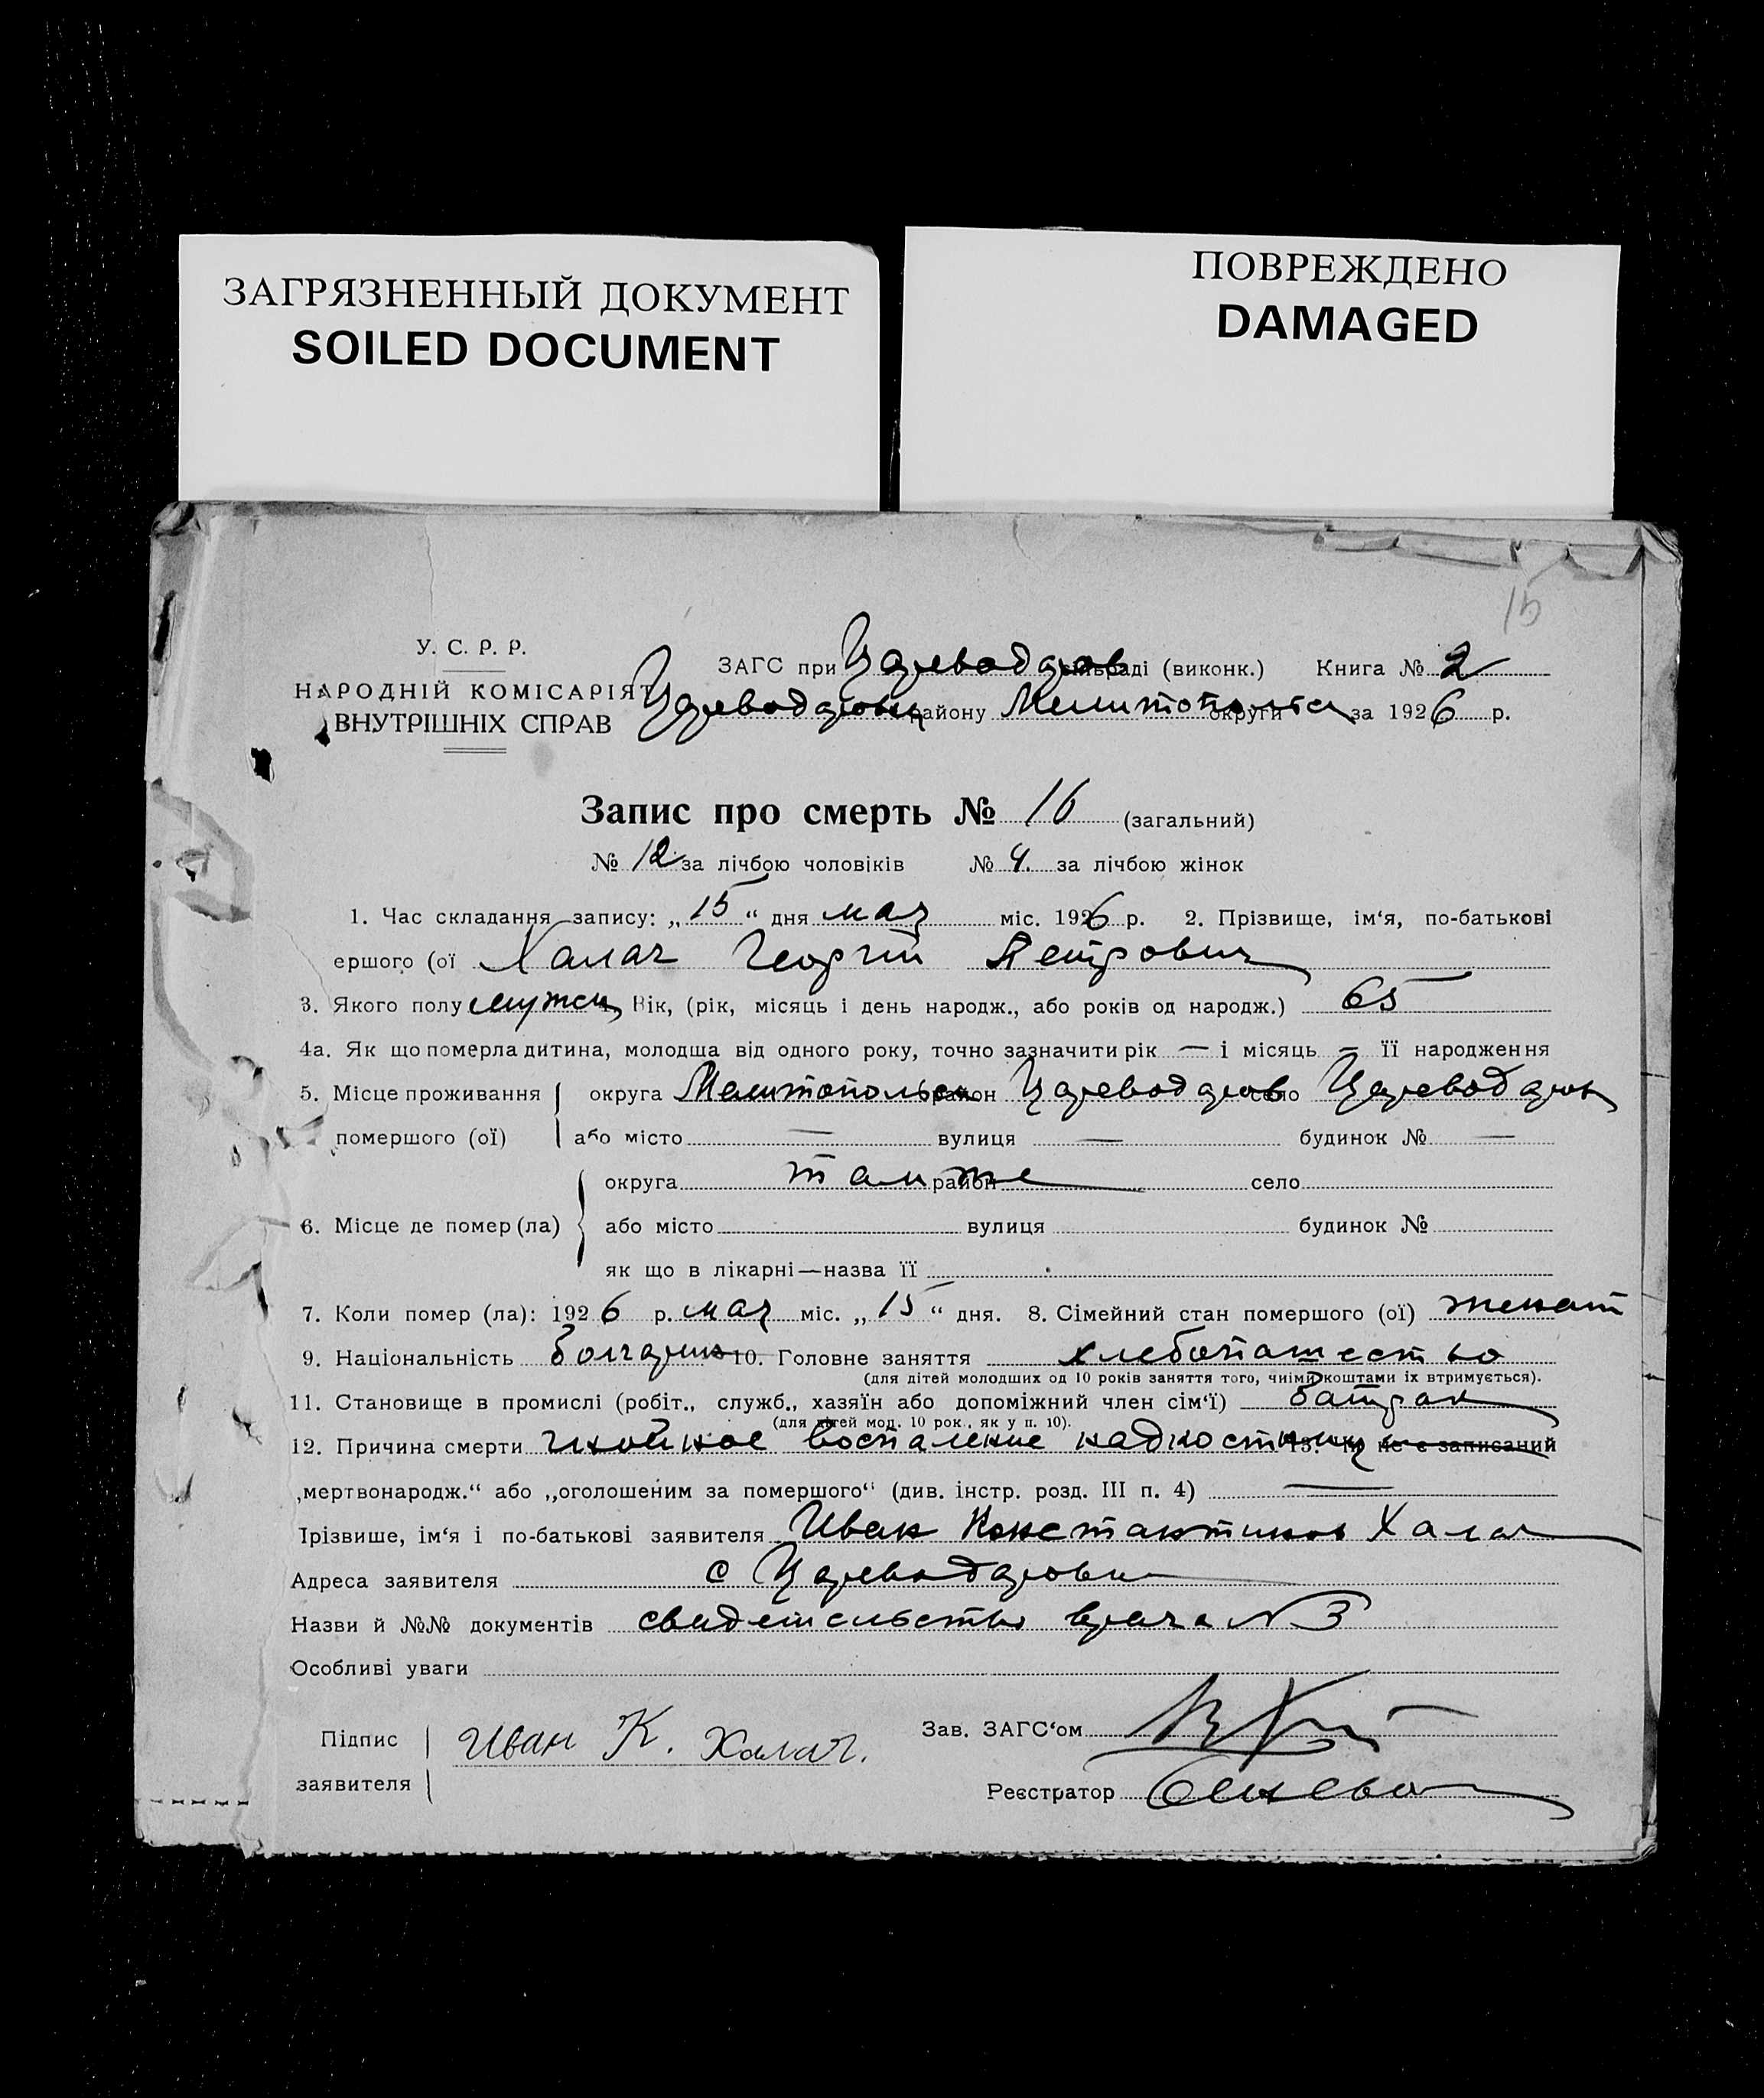 ЗАГРЯЗНЕННЫЙ ДОКУМЕНТ
SOILED DOCUMENT
ПОВРЕЖДЕНО
DAMAGED
15
У. С. Р. Р.
НАРОДНІЙ КОМІСАРІЯТ
ВНУТРІШНІХ СПРАВ
ЗАГС при Цареводаров сільраді (виконк.) Книга № 2
Цареводаровск району Мелитопольск округи за 1926 р.
Запис про смерть № 16 (загальний)
№ 12 за лічбою чоловіків № 4 за лічбою жінок
1. Час складання запису: „15“ дня мая міс. 1926 р. 2. Прізвище, ім‘я, по-батькові
ершого (ої Халач Георгій Петрович
3. Якого полу мужск Вік, (рік, місяць і день народж., або років од народж.) 65
4а. Як що померла дитина, молодша від одного року, точно зазначити рік — і місяць — її народження
5. Місце проживання округа Мелитопольск район Цареводаров село Цареводаров
помершого (ої) або місто — вулиця — будинок № —
округа там же район село
6. Місце де помер (ла) або місто вулиця будинок №
як що в лікарні—назва її
7. Коли помер (ла): 1926 р. мая міс. „15“ дня. 8. Сімейний стан помершого (ої) женат
9. Національність болгарин 10. Головне заняття хлебопашество
(для дітей молодших од 10 років заняття того, чиїми коштами їх втримується).
11. Становище в промислі (робіт., служб., хазяїн або допоміжний член сім‘ї) батрак
(для дітей мол. 10 рок., як у п. 10).
12. Причина смерти гнойное воспаление надкостницы 13. Чи не є записаний
„мертвонародж.“ або „оголошеним за помершого“ (див. інстр. розд. III п. 4) —
Ірізвише, ім‘я і по-батькові заявителя Иван Константинов Халач
Адреса заявителя с Цареводаровка
Назви й №№ документів свидетельство врача N 3
Особливі уваги
Підпис заявителя Иван К. Халач.
Зав. ЗАГС‘ом
Реєстратор